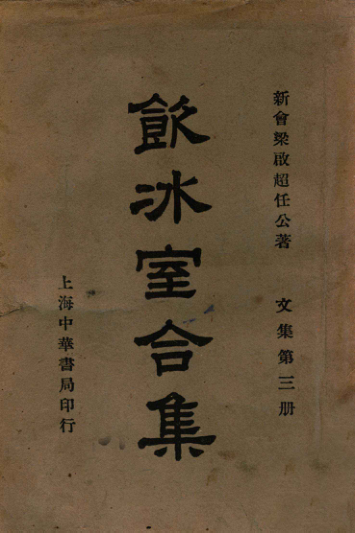 新會梁啟超任公著
文集第三册
飲冰室合集
上海中華書局印行